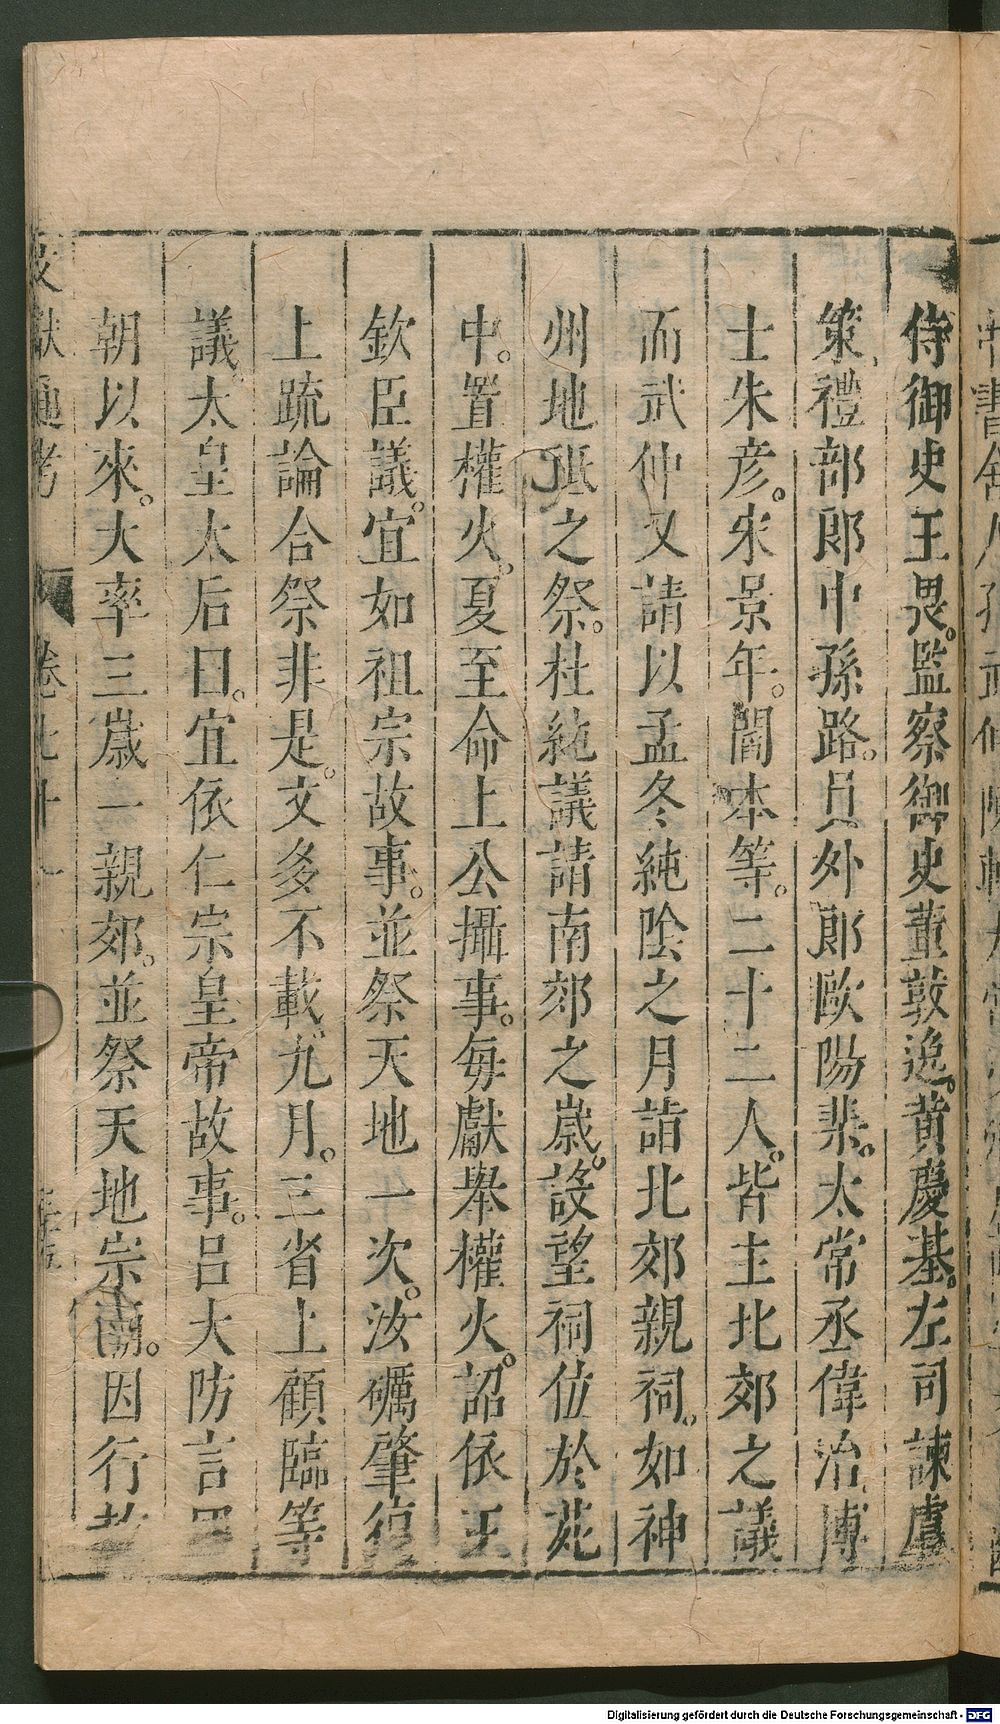 侍御史王畏。監察御史董敦逸。黃慶基。左司諫虞
策、禮部郎中孫路。員外郎歐陽棐。太常丞偉治、博
士朱彥。宋景年。閻本等。二十二人。皆主北郊之議
而武仲又請以孟冬純陰之月詣北郊親祠。如神
州地祇之祭。杜純議請南郊之歲。設望祠位於苑
中。置權火。夏至命上公攝事。每獻舉權火。詔依王
欽臣議。宜如祖宗故事。並祭天地一次。汝礪肇復
上疏論合祭非是。文多不載。九月。三省上顧臨等
議。太皇太后曰。宜依仁宗皇帝故事。呂大防言
朝以來。大率三歲一親郊。並祭天地宗廟。因行
文獻通考 卷七十一
Digitalisierung gefördert durch die Deutsche Forschungsgemeinschaft - DFG